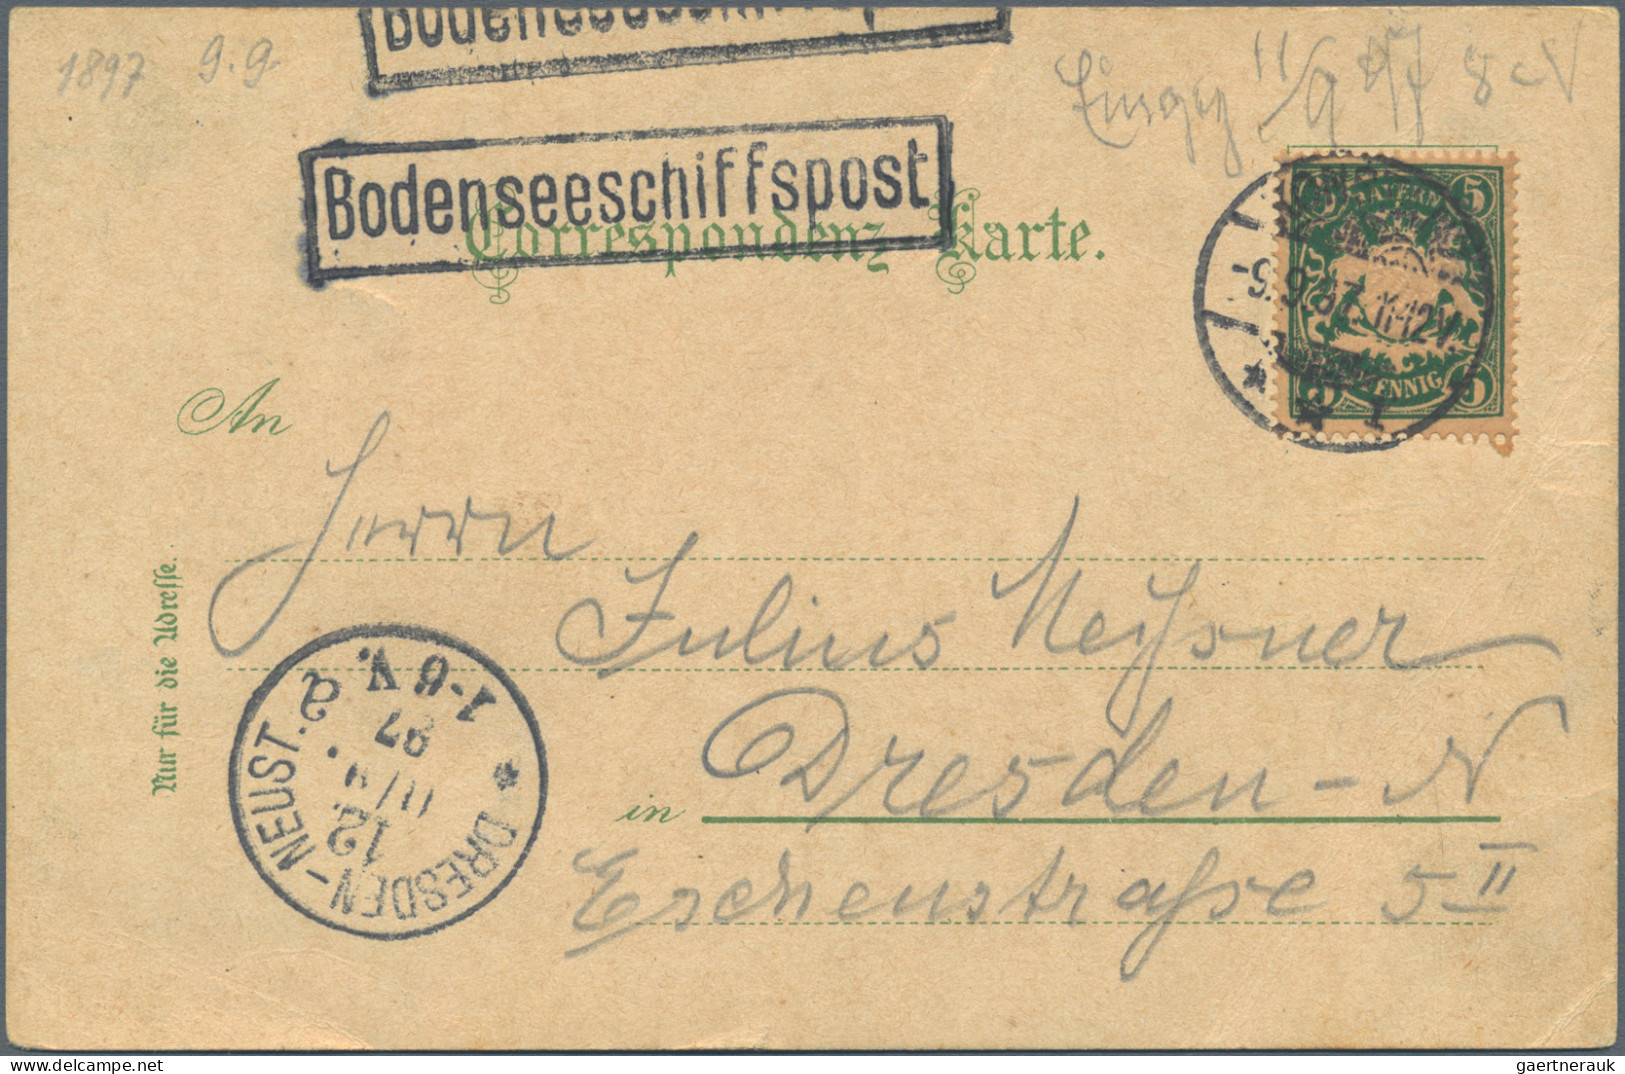 Bodenseeschiffspost
1897 9.9
11/9 97 8
Bodenseeschiffspost
Correspondenz-Karte.
5 BAYERN 5
-9.9.97.11-12V.
PFENNIG 5
1
An
Herrn
Julius Meyſner
in Dresden-N
Eschenstraſse 5 II
Nur für die Adreſſe.
DRESDEN-NEUST.
1-6 V.
97
12
gaertnerauk